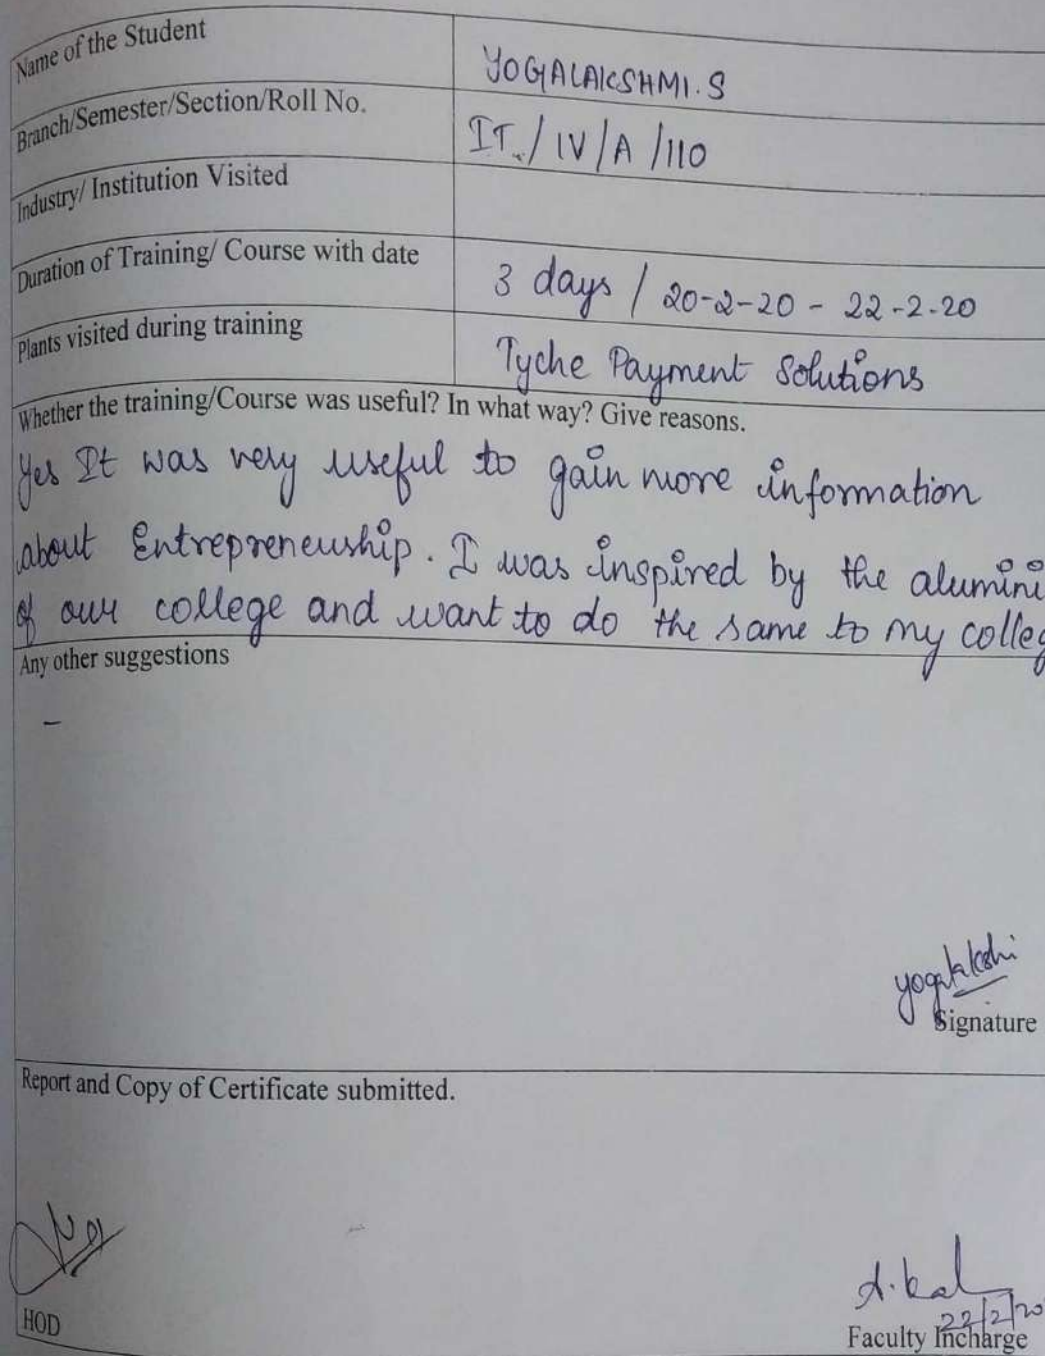 Name of the Student YOGALAKSHMI.S
Branch/Semester/Section/Roll No. IT./IV/A/110
Industry/ Institution Visited
Duration of Training/ Course with date 3 days / 20-2-20 - 22-2-20
Plants visited during training Tyche Payment Solutions
Whether the training/Course was useful? In what way? Give reasons.
Yes It was very useful to gain more information
about Entrepreneuship. I was inspired by the alumini
of our college and want to do the same to my colleg
Any other suggestions
-
Signature
Report and Copy of Certificate submitted.
22/2/20
HOD Faculty Incharge